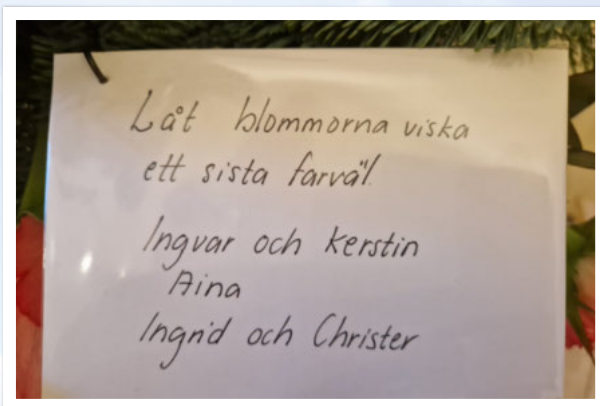 Låt blommorna viska
ett sista farväl.
Ingvar och Kerstin
Aina
Ingrid och Christer